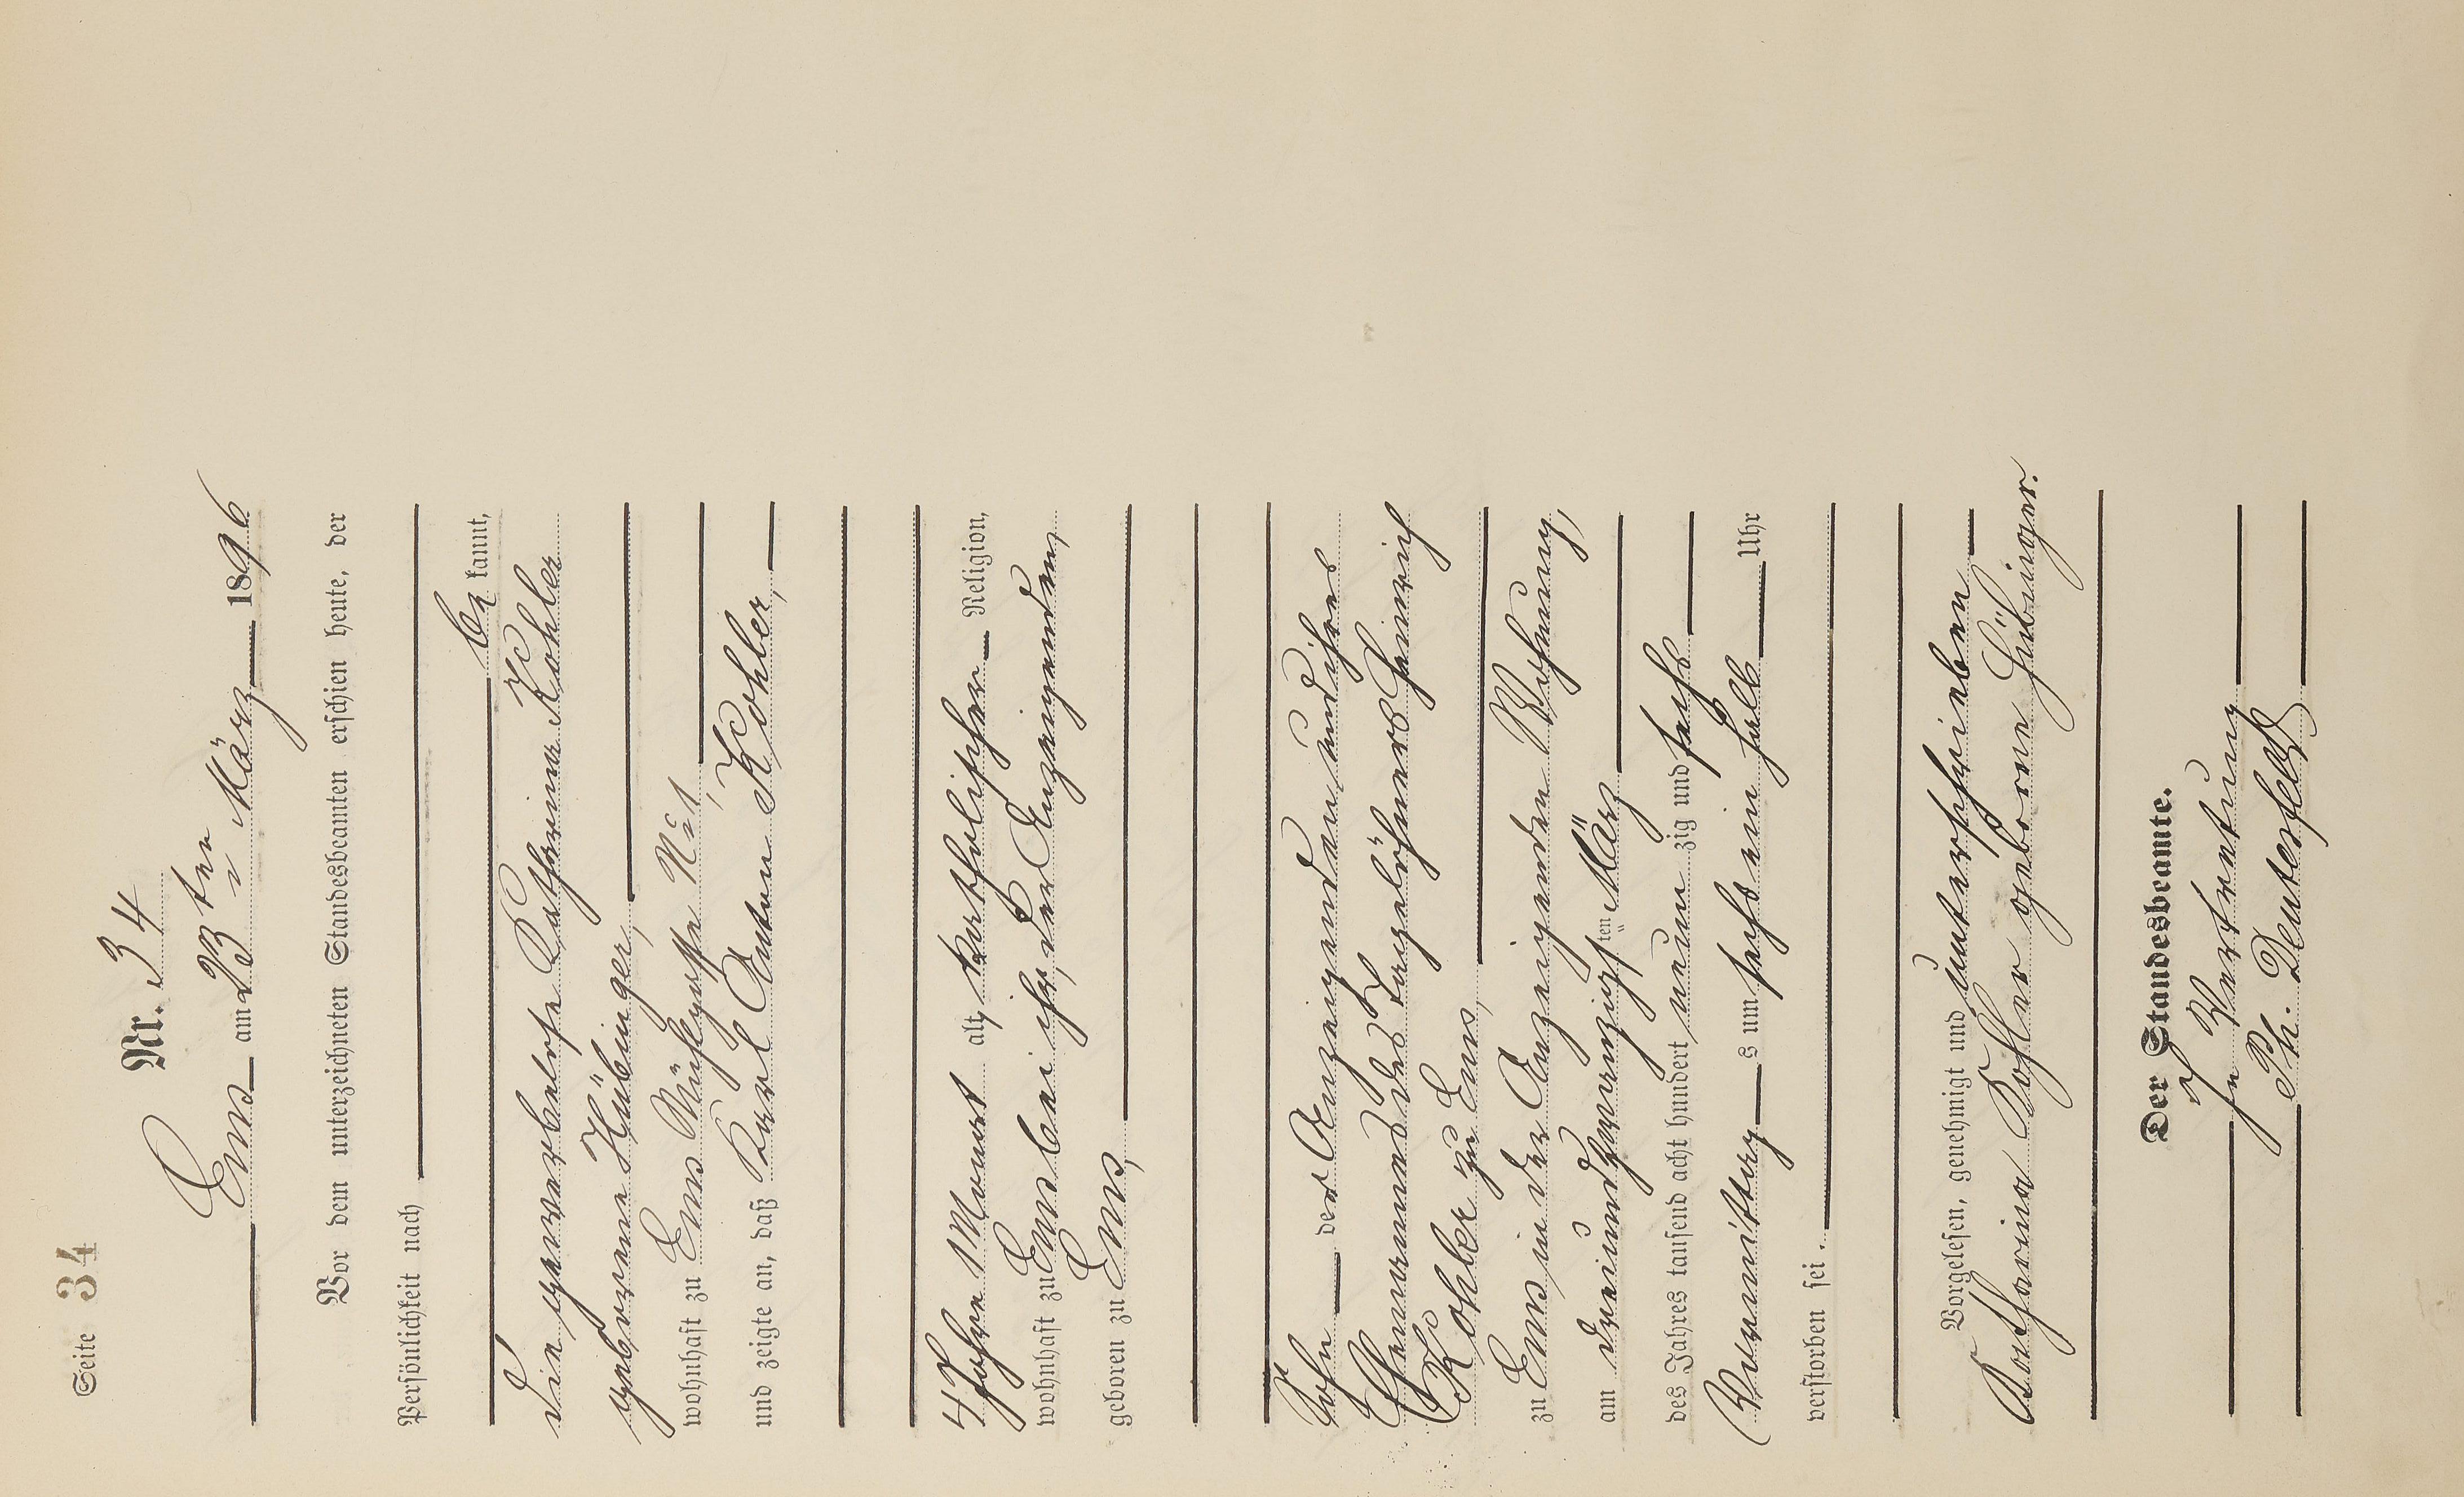 Seite 34
Nr. 34
Ems am 23ten März 1896
Vor dem unterzeichneten Standesbeamten erschien heute, der
Persönlichkeit nach
be kannt,
die gewerbelose Katharina Kohler
geborene Hübinger,
wohnhaft zu Ems Mühlgasse No 1,
und zeigte an, daß Karl Anton Kohler,
4 Jahre 1 Monat alt, katholischer Religion,
wohnhaft zu Ems bei ihr, der Anzeigenden,
geboren zu Ems,
Sohn der Anzeigenden und ihres
Ehemannes des Tagelöhners Heinrich
Kohler zu Ems,
zu Ems in der Anzeigenden Wohnung,
am dreiundzwanzigsten März
des Jahres tausend acht hundert neun zig und sechs
Vormittags um sechs ein halb Uhr
verstorben sei.
Vorgelesen, genehmigt und unterschrieben
Katharina Kohler geborne Hübinger.
Der Standesbeamte.
In Vertretung
Ph. Deuterfeld